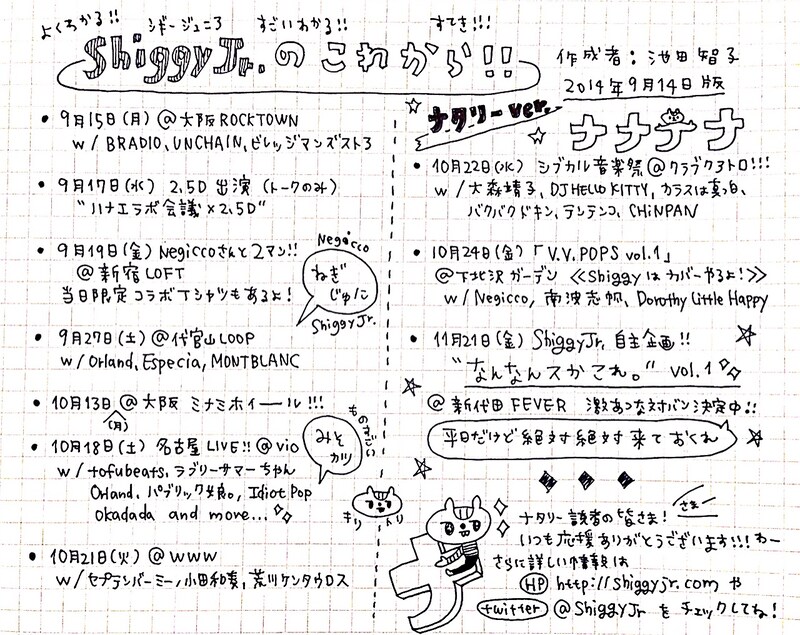 よくわかる!! シギージュニア すごいわかる!! すてき!!!
Shiggy Jr.のこれから!!
作成者:池田智子
2014年9月14日版
・9月15日(月) @大阪ROCKTOWN
w/ BRADIO、UNCHAIN、ビレッジマンズストア
・9月17日(水) 2.5D 出演 (トークのみ)
"ハナエラボ会議×2.5D"
・9月19日(金) Negiccoさんと2マン!!
@新宿LOFT
当日限定コラボTシャツもあるよ!
Negicco
ねぎじゅに
ShiggyJr.
・9月27日(土) @代官山LOOP
w/ Orland, Especia, MONTBLANC
・10月13日 @大阪 ミナミホイール!!!
(月)
・10月18日(土) 名古屋 LIVE!! @ vio
w/ tofubeats、ラブリーサマーちゃん
Orland、パブリック娘。、Idiot Pop
okadada and more...
ものすごい
みそカツ
・10月21日(火) @ WWW
w/ セプテンバーミー、小田和奏、荒川ケンタウロス
キリ トリ
ナタリーver.
ナナナナ
・10月22日(水) シブカル音楽祭@クラブクアトロ!!!
w/ 大森靖子、DJ HELLO KITTY、カラスは真っ白、
バクバクドキン、テンテンコ、CHiNPAN
・10月24日(金)「V.V.POPS vol.1」
@下北沢 ガーデン 《Shiggyはカバーやるよ!》
w/ Negicco、南波志帆、Dorothy Little Happy
・11月21日(金) ShiggyJr. 自主企画!!
"なんなんスかこれ。" vol.1
@新代田 FEVER 激あつな対バン決定中!!
平日だけど絶対絶対来ておくれ
ナ
さまー
ナタリー読者の皆さま!
いつも応援ありがとうございます!!! わー
さらに詳しい情報は
HP http://shiggyjr.com や
twitter @ShiggyJr をチェックしてね!